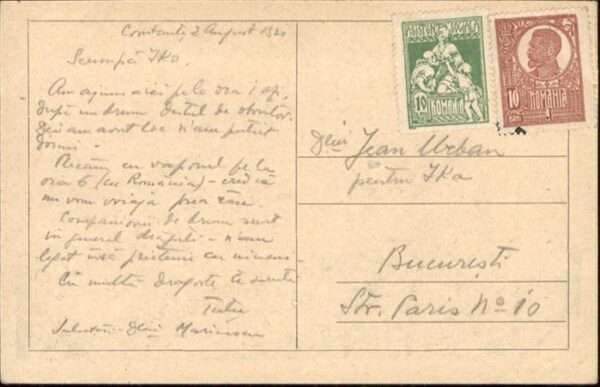 Constanța 2 August 1920
Scumpă Ika,
Am ajuns aici pe la ora 1
după un drum destul de obositor.
Deși am avut loc n'am putut
dormi.
Plecăm cu vaporul pe la
ora 6 (cu România) - cred că
nu vom voiaja prea rău.
Companionii de drum sunt
în general drăguți - n'am
legat însă prietenie cu nimeni
Cu multă dragoste te sărută
Salutări Marinescu
10
ROMANIA
10
BANI
ROMANIA
Jean Urban
pentru Ika
București
Str. Paris No 10